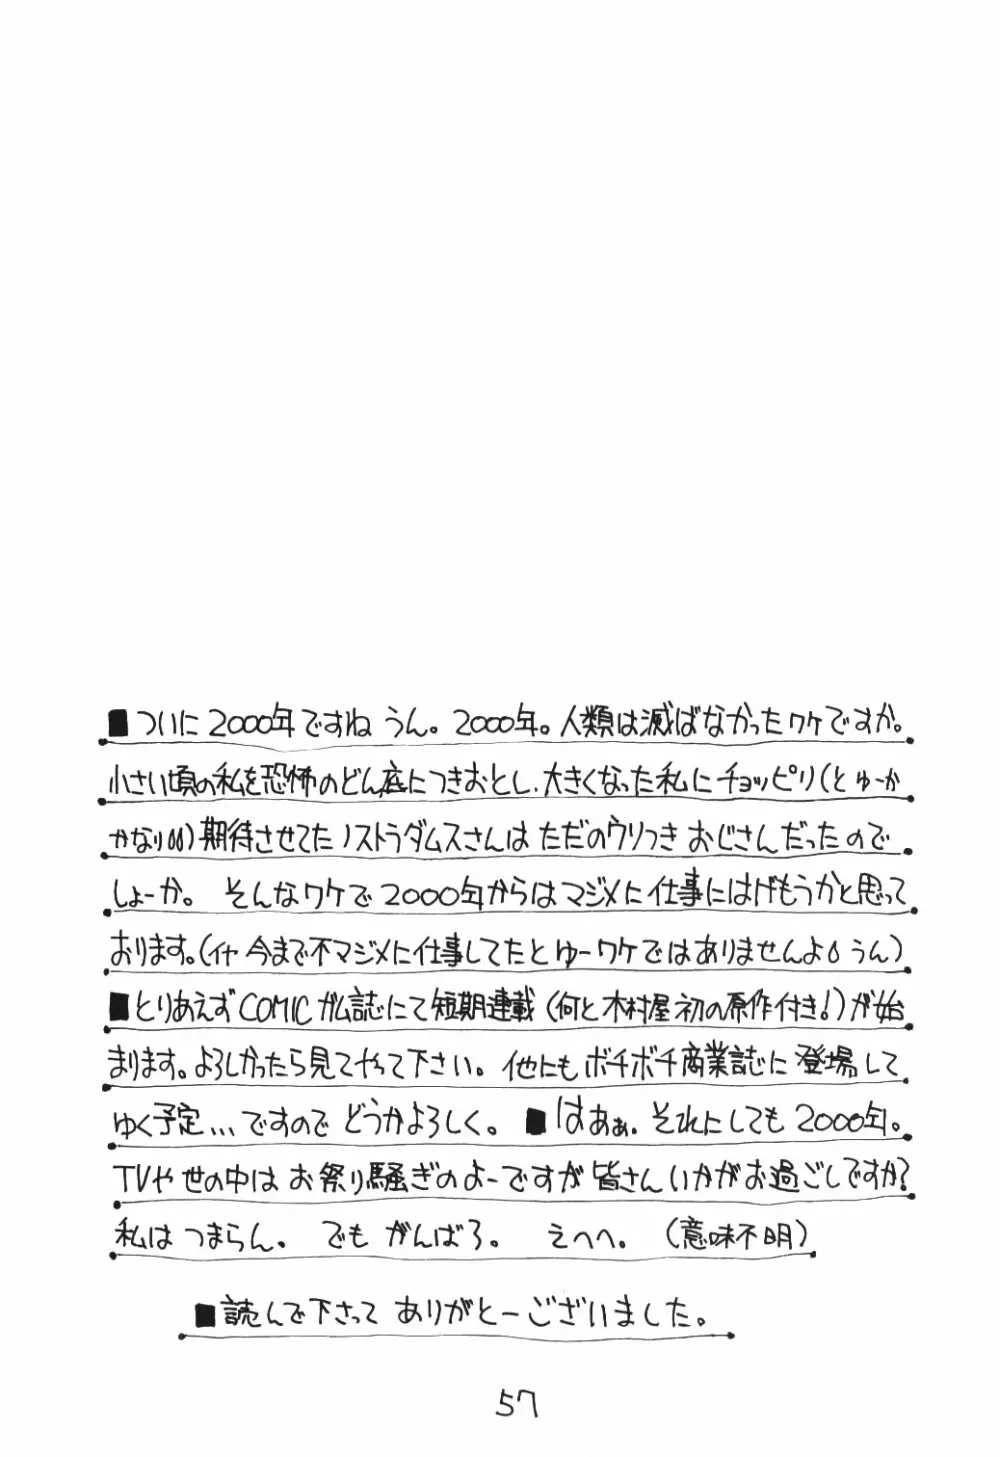 ■ついに2000年ですね うん。2000年。人類は滅ばなかったワケですか。
小さい頃の私を恐怖のどん底につきおとし、大きくなった私にチョッピリ(とゆーか
かなり)期待させてたノストラダムスさんは ただのウソつき おじさんだったので
しょーか。 そんなワケで 2000年からはマジメに仕事にはげもうかと思って
おります。(イヤ 今まで不マジメに仕事してたとゆーワケではありませんよ うん)
■とりあえずCOMICガム誌にて短期連載(何と木村屋初の原作付き!)が始
まります。よろしかったら見てやって下さい。他にもボチボチ商業誌に登場して
ゆく予定...ですので どうかよろしく。 ■はあぁ。それにしても2000年。
TVや世の中は お祭り騒ぎのよーですが 皆さんいかがお過ごしですか?
私は つまらん。 でも がんばろ。 えへへ。 (意味不明)
■読んで下さって ありがとーございました。
57